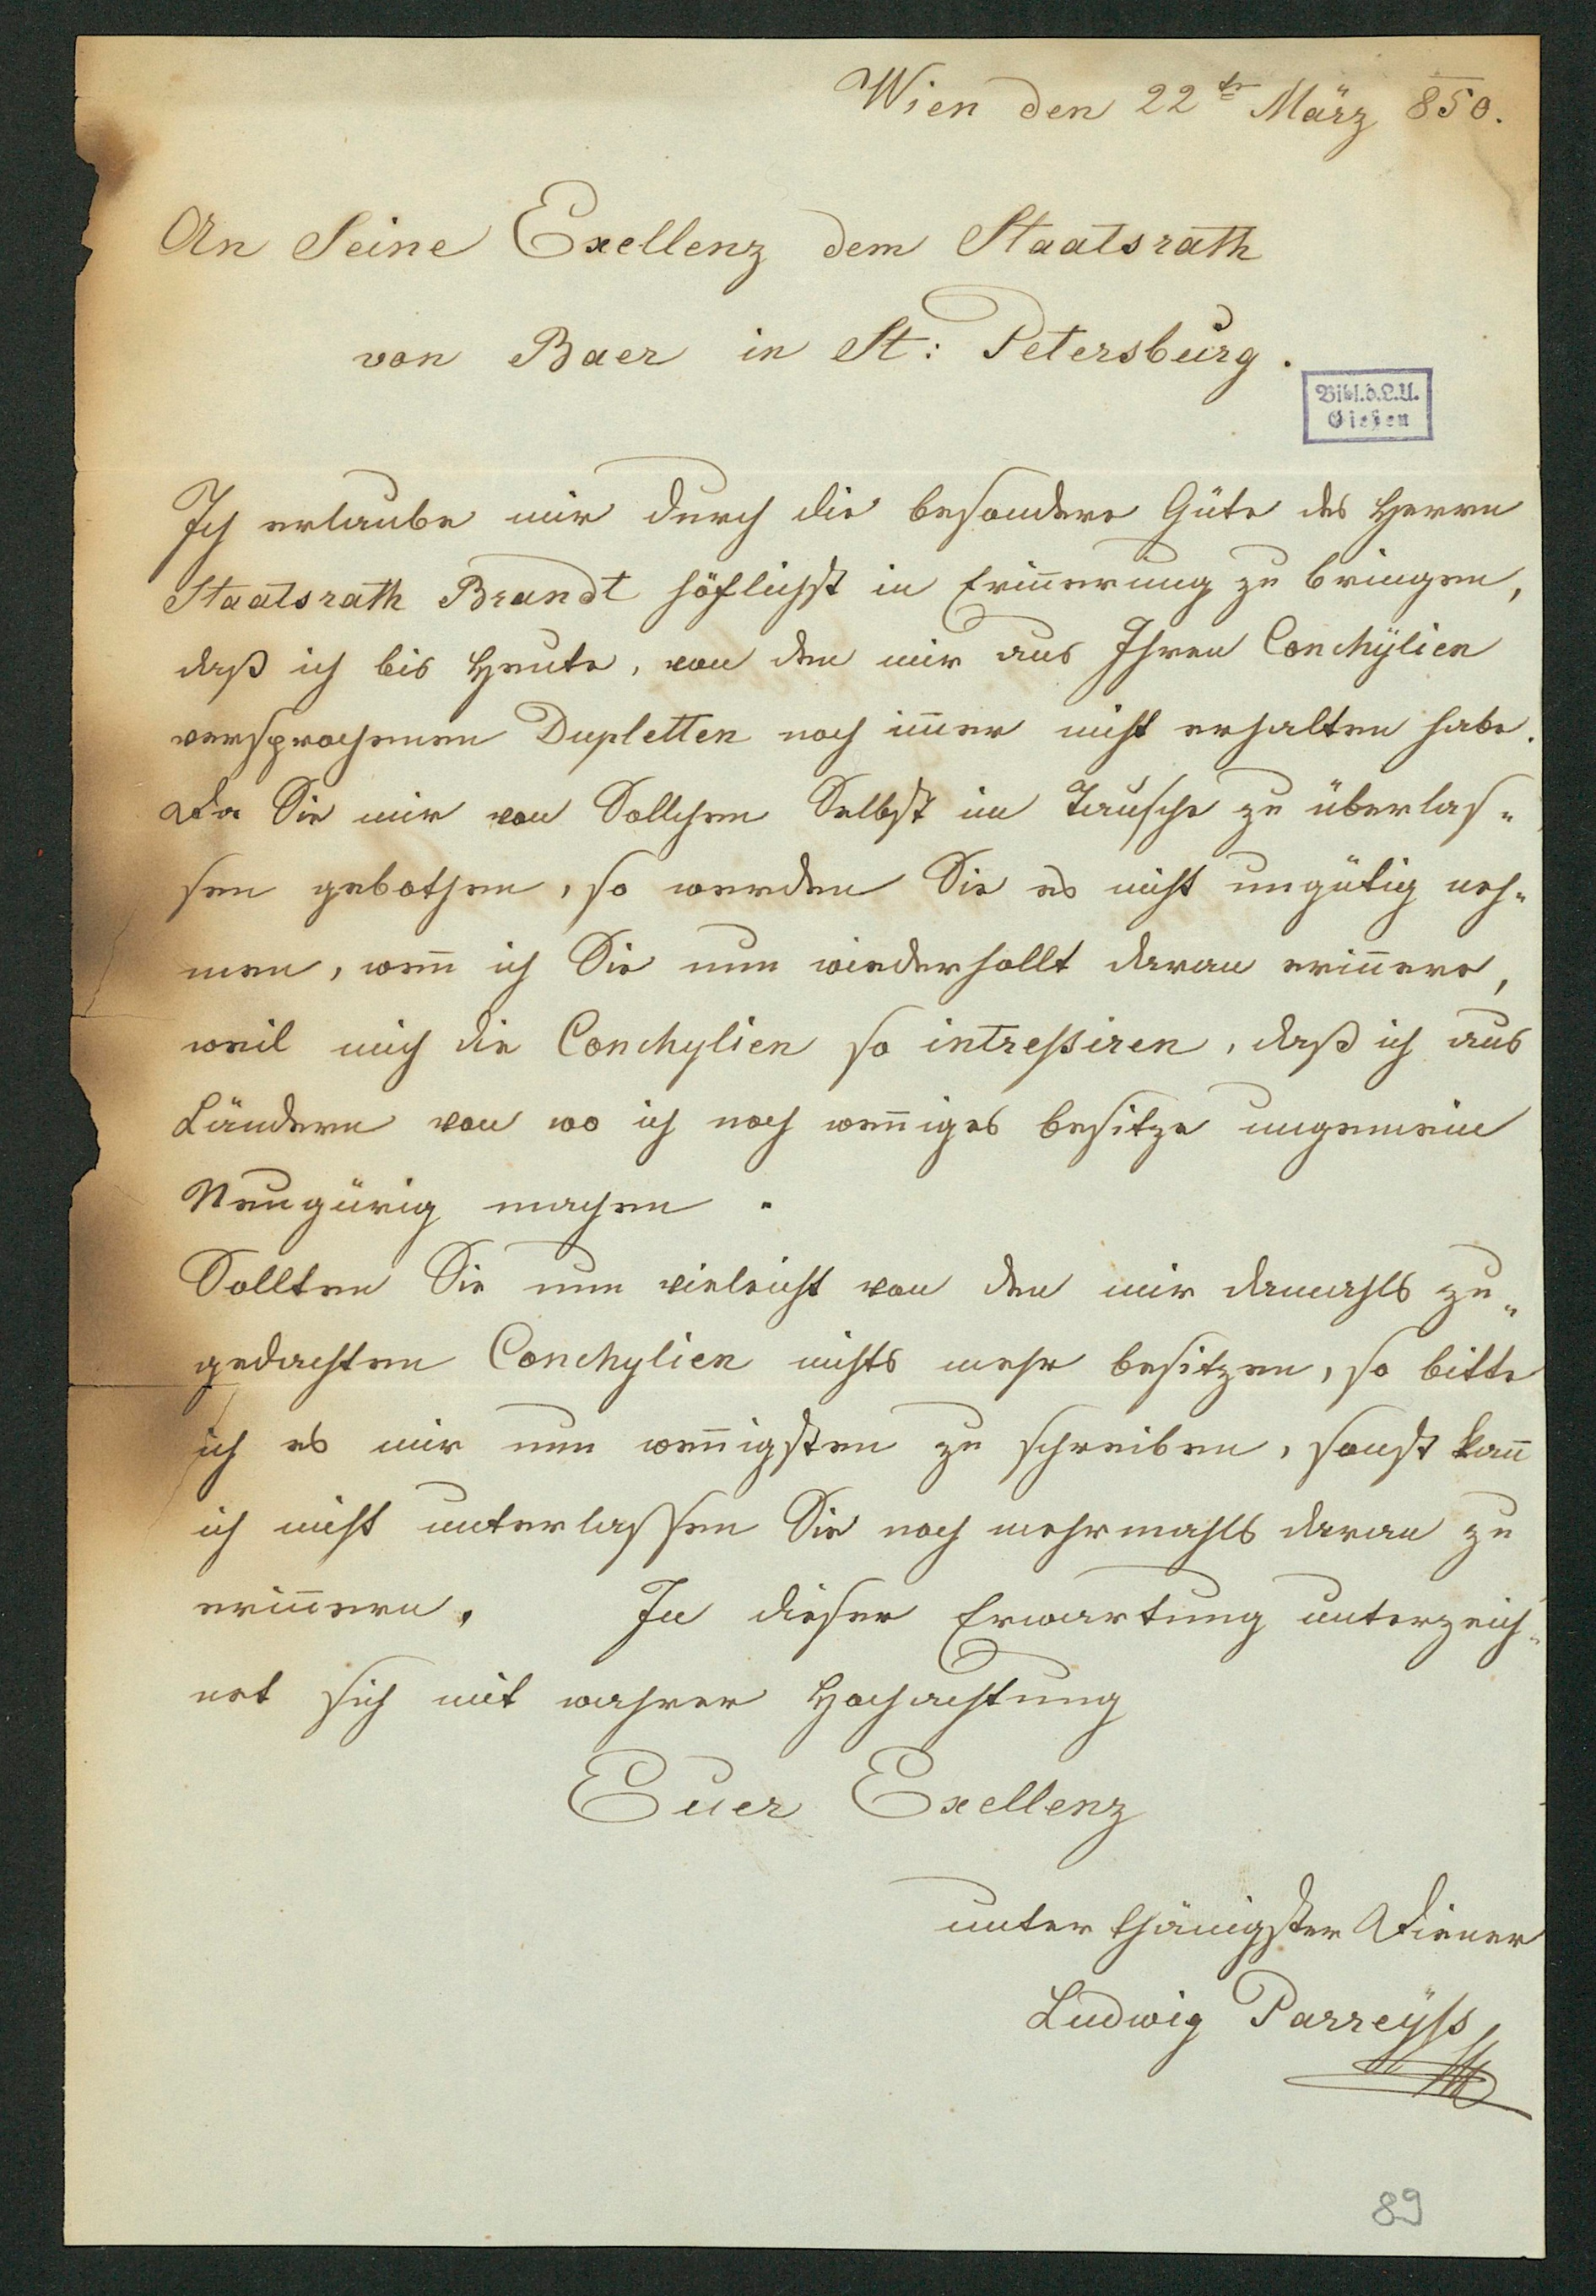 Wien den 22te März 850.
An Seine Exellenz dem Staatsrath
von Baer in St: Petersburg.
Bibl.d.L.U.
Gießen
Ich erlaube mir durch die besondere Güte des Herrn
Staatsrath Brandt höflichst in Erin̄erung zu bringen,
daß ich bis Heute, von den mir aus Ihren Conchÿlien
versprochenen Dupletten noch im̄er nicht erhalten habe.
Da Sie mir von Sollchen Selbst im Tausche zu überlas=
sen gebothen, so werden Sie es nicht ungütig neh=
men, wen̄ ich Sie nun wiederhollt daran erin̄ere,
weil mich die Conchylien so intreßiren, daß ich aus
Ländern von wo ich noch wen̄iges besitze ungemein
Neugürig machen.
Sollten Sie nun vieleicht von den mir damahls zu=
gedachten Conchylien nichts mehr besitzen, so bitte
ich es mir nun wen̄igsten zu schreiben, sonst kan̄
ich nicht unterlassen Sie noch mehrmahls daran zu
erin̄ern. In dieser Erwartung unterzeich=
net sich mit wahrer Hochachtung
Euer Exellenz
unterthänigster Diener
Ludwig Parreÿss
89